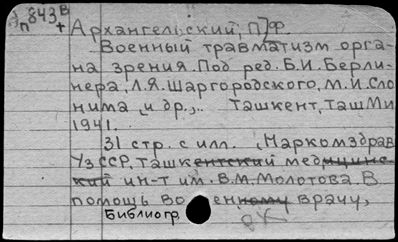 п843в
+ Архангельский, П]Ф.
Военный травматизм орга-
на зрения. Под ред. Б.И. Берли-
нера, Л.Я. Шаргородского, М.И. Сло
нима, и др., .. Ташкент, ТашМи
1941.
31 стр. с илл. (Наркомздрав
УзССР, Ташкентский медицинс-
кий ин-т им. В.М. Молотова. В
помощь военному врачу,
Библиогр